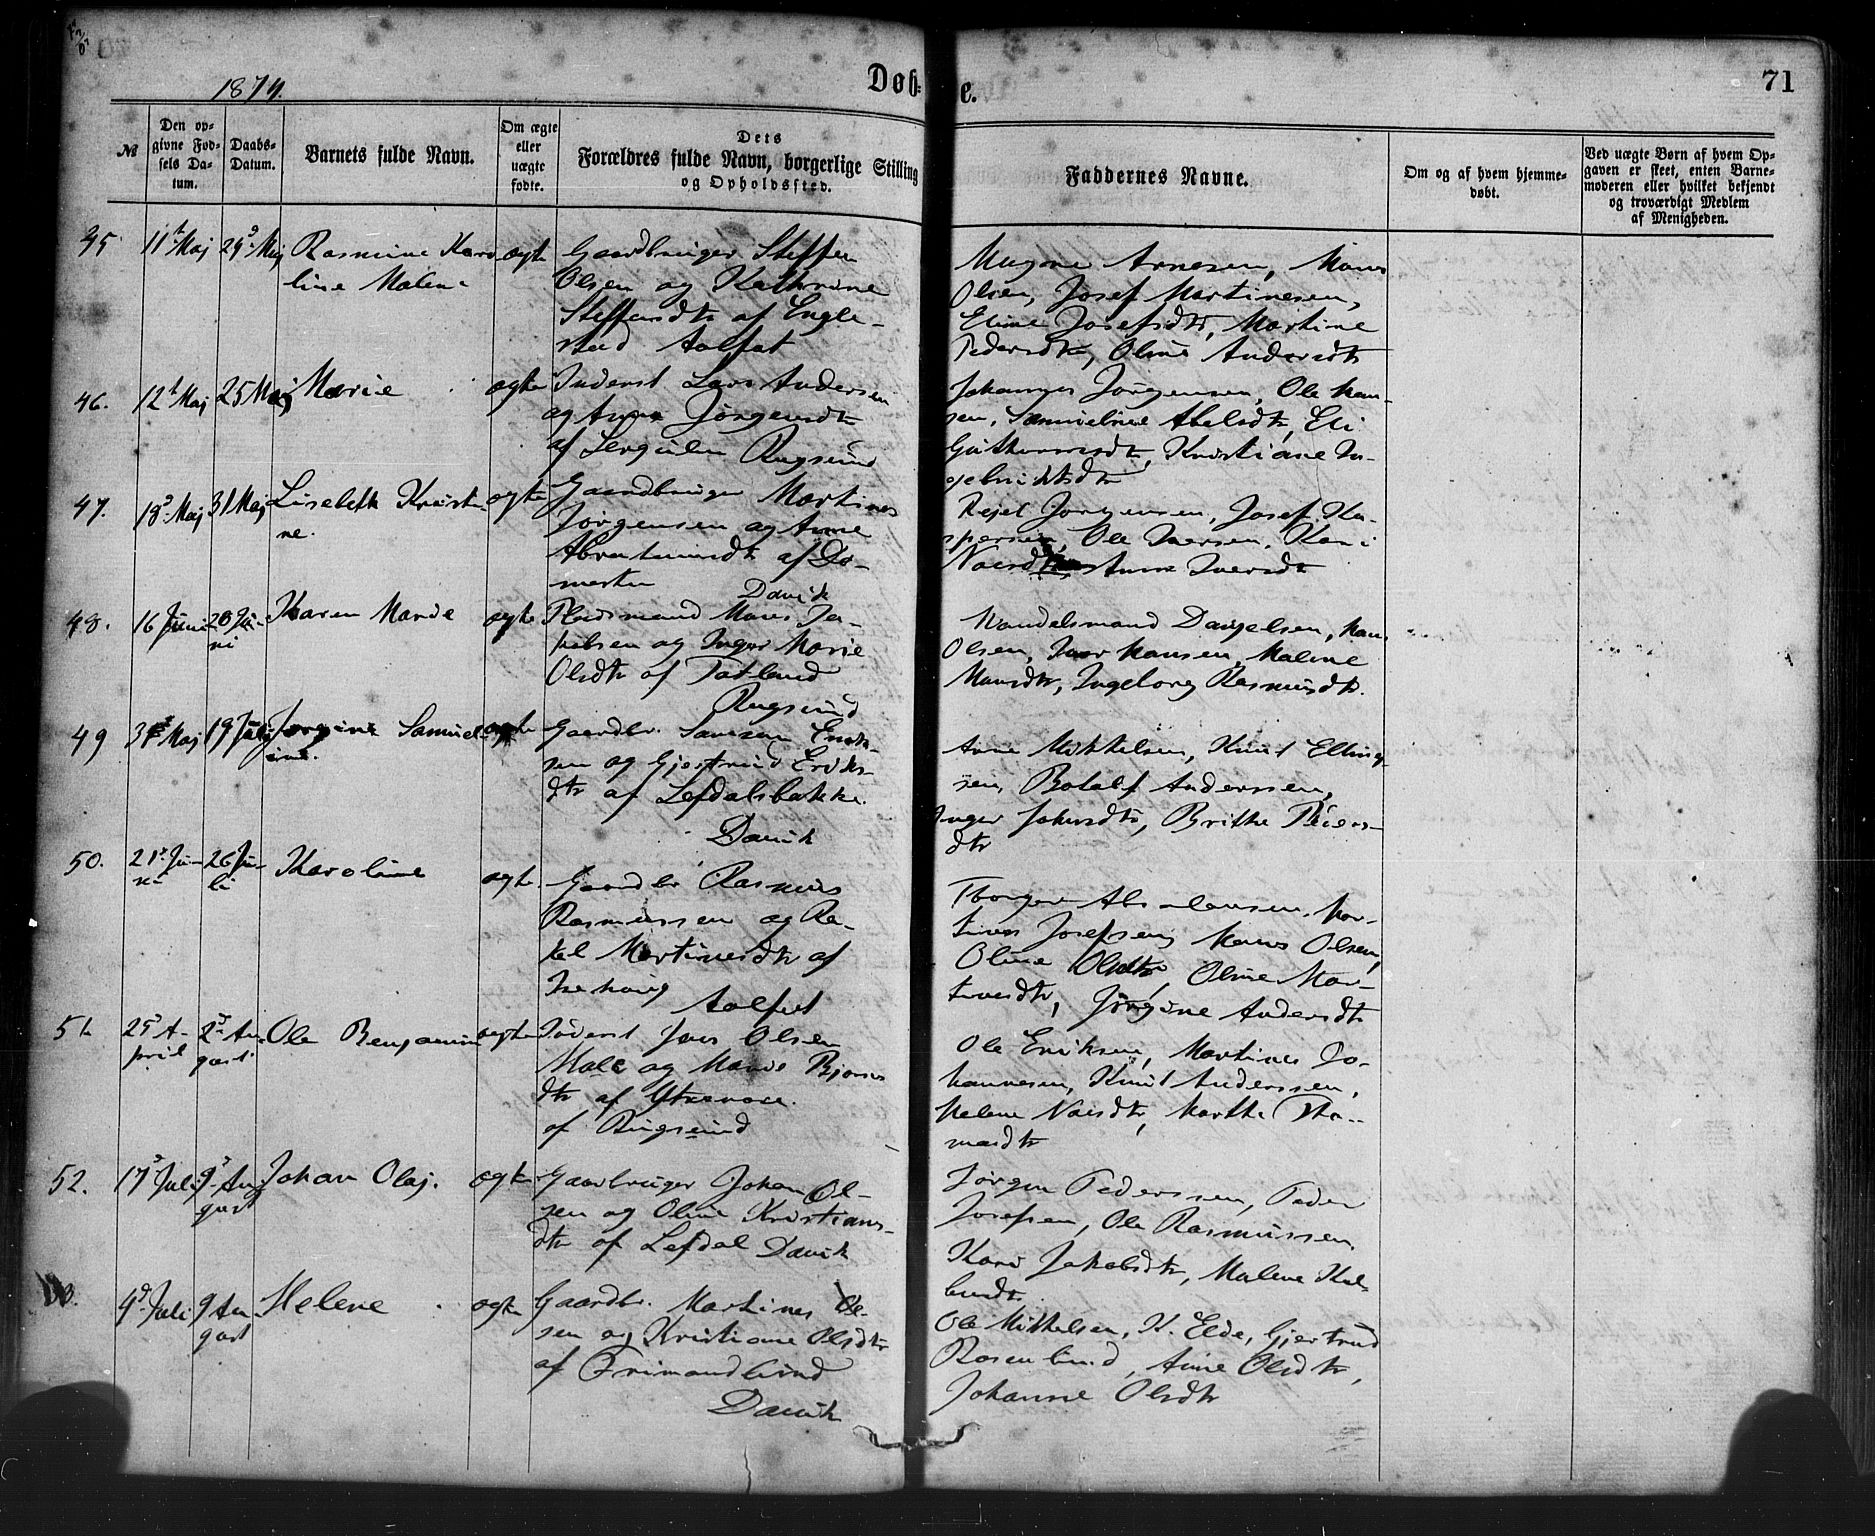 1874.
Døb-
e.
71
№
Den op-
givne Fød-
sels Da-
tum.
Daabs-
Datum.
Barnets fulde Navn.
Om ægte
eller
uægte
fødte.
Dets
Forældres fulde Navn, borgerlige Stilling
og Opholdssted.
Faddernes Navne.
Om og af hvem hjemme-
døbt.
Ved uægte Børn af hvem Op-
gaven er skeet, enten Barne-
moderen eller hvilket bekjendt
og troværdigt Medlem
af Menigheden.
45 11 Maj 25 Maj Rasmine Karo
line Malene
ægte
Gaardbruger Steffen
Olsen og Kathrine
Steffensdtr af Engle-
stad Aalfot
Mogne Arnesen, Mons
Olsen, Josef Martinesen,
Eline Josefsdtr, Martine
Pedersdtr, Oline Andersdtr
46. 12 Maj 25 Maj Marie
ægte
Inderst Lars Andersen
og Anne Jørgensdtr
af Rugsund
Johannes Jørgensen, Ole Han-
sen, Samueline Abelsdtr, Eli
Guthormsdtr, Kristiane In-
gebrigtsdtr
47. 13 Maj 31 Maj Lisebeth Kristi-
ne.
ægte
Gaardbruger Martines
Jørgensen og Anne
Abrahamsdtr af Do-
mesten
Davik
Rejel Jørgensen, Josef Ka-
spersen, Ole Iversen, Kari
Anne Iversdtr
48. 16 Juni 28 Ju-
ni
Karen Marie
ægte
Pladsmand Mons Ja-
kobsen og Inger Marie
Olsdtr af Totland
Rugsund
Handelsmand Danjelsen, Hans
Olsen, Iver Hansen, Malene
Monsdtr, Ingeborg Rasmusdtr.
49 31 Maj 19 Juli Jørgine Samuel-
ine.
ægte
Gaardbr. Erik-
sen og Gjertrud Eriks-
dtr af Lefdalsbakke.
Davik
Arne Mikkelsen, Knut Elling-
sen, Botolf Anderssen,
Inger Johnsdtr, Brithe Peders-
dtr
50. 21 Ju-
ni
26 Ju-
li
Karoline
ægte
Gaardbr Rasmus
Rasmussen og Ra-
kel Martinesdtr af
Aalfot
Thorger Absalonsen, Mar-
tines Josefsen, Hans Olsen,
Oline Olsdtr, Oline Mar-
tinesdtr, Jørgine Andersdtr
51. 25 A-
pril
2 Au-
gust
Ole Benjamin
ægte
Inderst Jens Olsen
Hole og Marie Bjørns
dtr af
af Rugsund
Ole Eriksen, Martines Jo-
hannesen, Knut Anderssen,
Helene Marthe Tho-
masdtr
52. 17 Juli 9 Au
gust
Johan Olaj.
ægte
Gaardbruger Johan Ol-
sen og Oline Kristians-
dtr af Lefdal Davik
Jørgen Pederssen, Peder
Josefsen, Ole Rasmussen,
Kari Jakobsdtr, Malene Kol-
bensdtr
53. 4 Juli 9 Au
gust
Helene
ægte
Gaardbr. Martines Ol-
sen og Kristiane Olsdtr
af Frimandslund
Davik
Ole Mikkelsen, K. Elde, Gjertrud
Rosenlund, Anne Olsdtr,
Johanne Olsdtr